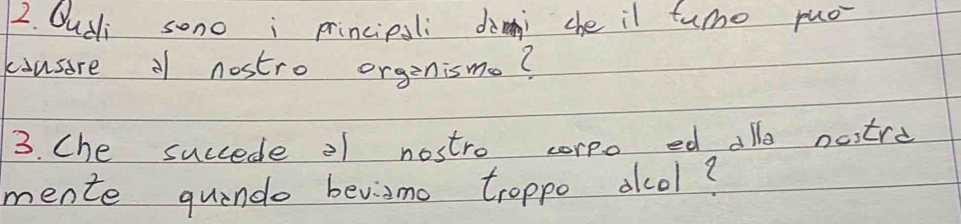 2. Quali sono i principali danni che il fumo può
causare al nostro organismo?
3. Che succede al nostro corpo ed alla nostra
mente quando beviamo troppo alcol?